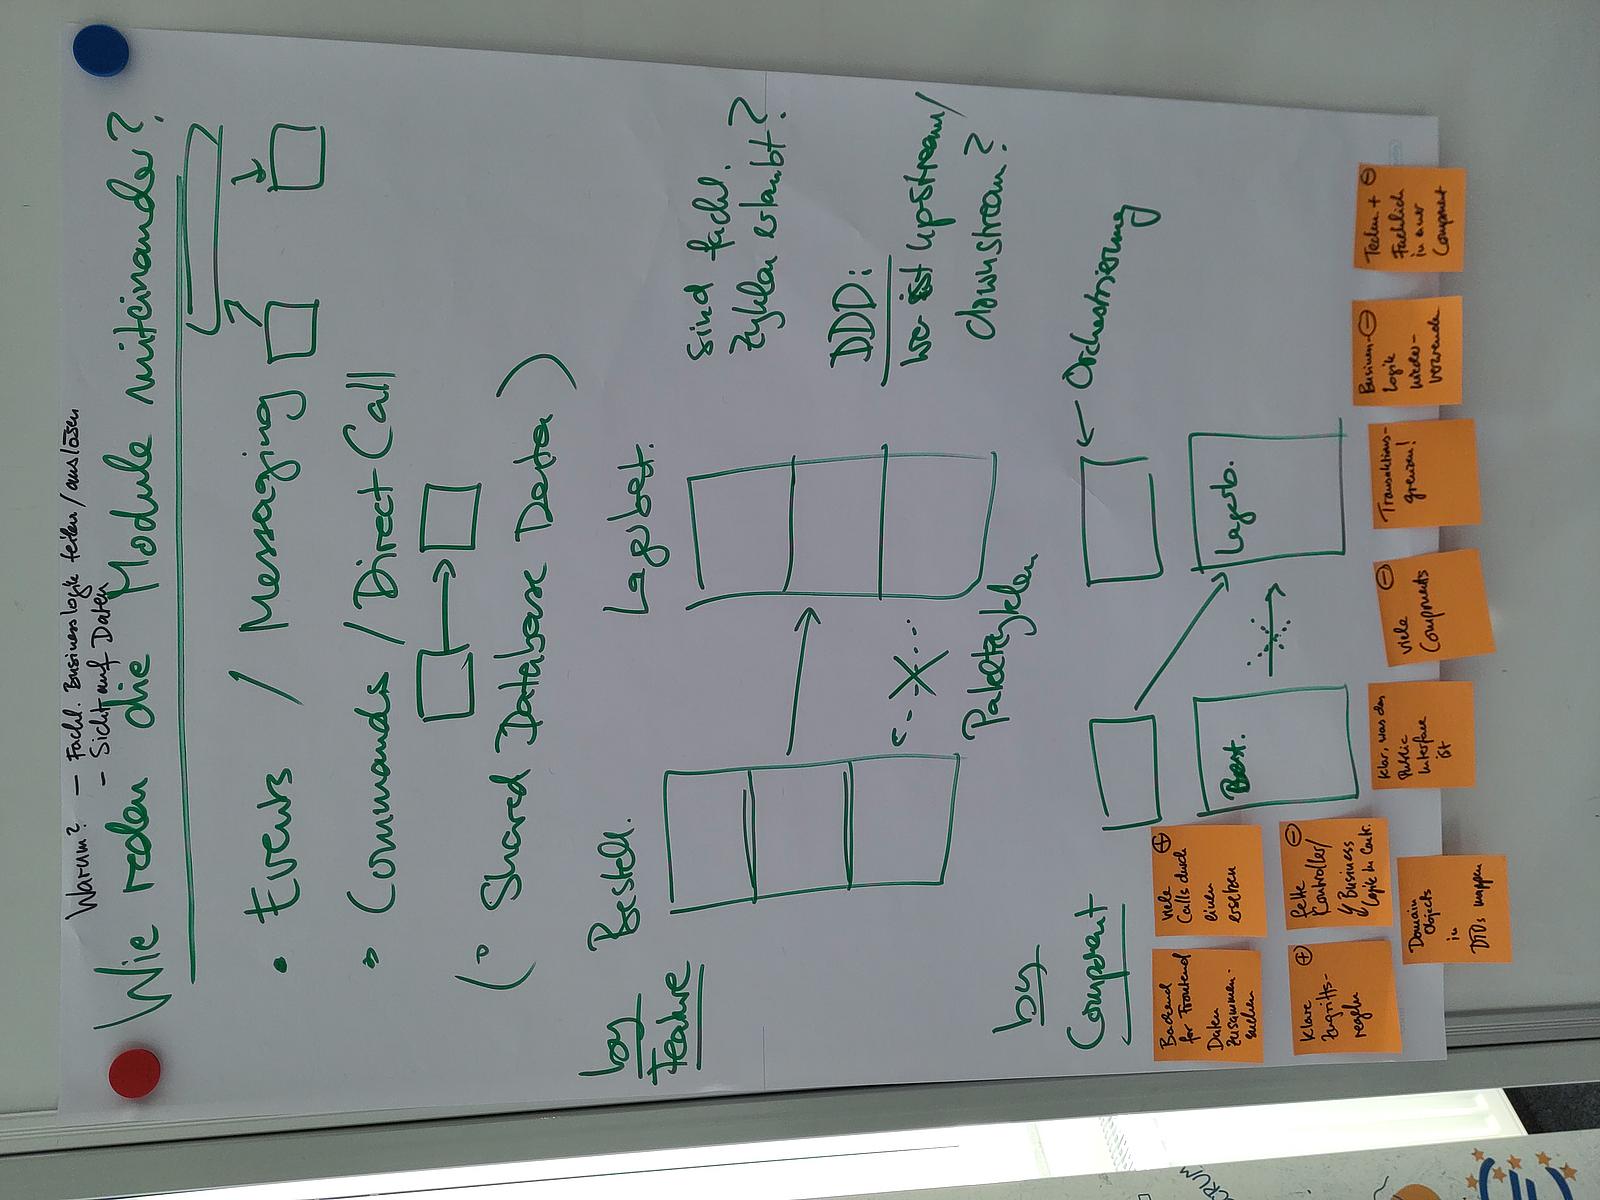 Warum? – Fachl. Businesslogik teilen/auslösen
– Sicht auf Daten
Wie reden die Module miteinander?
• Events / Messaging
• Commands / Direct Call
(• Shared Database Data)
by
Feature
Bestell.
Lagerbest.
sind fachl.
Zyklen erlaubt?
DDD:
wo ist upstream/
downstream?
Paketzyklen
by
Component
Orchestrierung
Best.
Lagerb.
Backend
for Frontend
Daten
zusammen-
suchen
viele
Calls durch
einen
ersetzen
klare
Zugriffs-
regeln
fette
Controller/
Business
Logik in Contr.
Domain
Objects
in
DTOs mappen
klar, was das
Public
Interface
ist
viele
Components
Transaktions-
grenzen!
Business-
logik
wieder-
verwenden
Techn. +
Fachlich
in einer
Component
CRUM